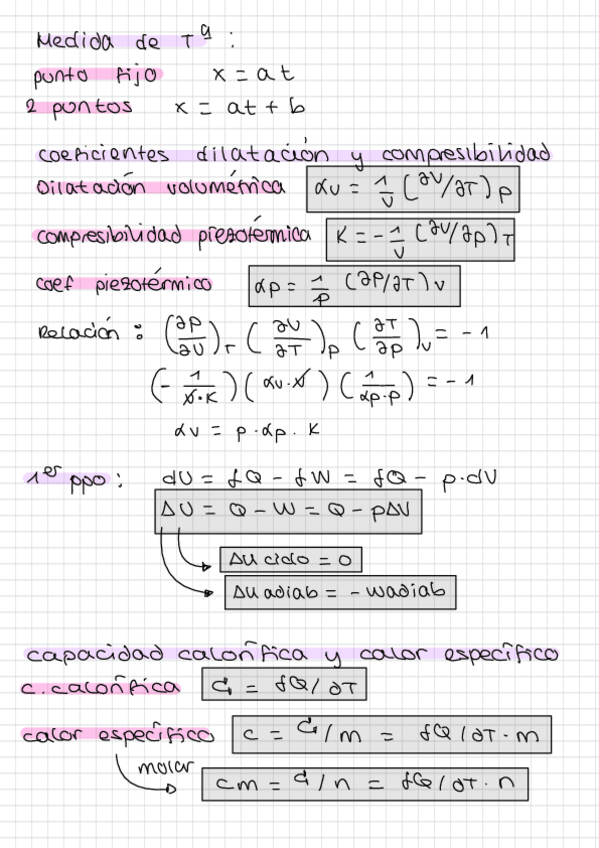 Medida de Tª :
punto fijo x = at
2 puntos x = at + b
coeficientes dilatación y compresibilidad
Dilatación volumétrica αv = 1/V (∂V/∂T)p
compresibilidad piezotérmica K = - 1/V (∂V/∂p)T
coef piezotérmico αp = 1/p (∂P/∂T)v
Relación : (∂p/∂V)T (∂V/∂T)p (∂T/∂p)V = -1
(- 1/V·K) (αv·V) (1/αp·p) = -1
αv = p·αp·K
1er ppo : dU = δQ - δW = δQ - p·dV
ΔU = Q - W = Q - pΔV
ΔU ciclo = 0
ΔU adiab = - Wadiab
capacidad calorífica y calor específico
c. calorífica C = δQ/∂T
calor específico c = C/m = δQ/∂T·m
molar cm = C/n = δQ/∂T·n